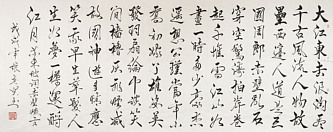 大江東去浪淘盡
千古風流人物故
壘西邊人道是三
國周郎赤壁亂石
穿空驚濤拍岸卷
起千堆雪江山如
畫一時多少豪傑
遙想公瑾當年小
喬初嫁了雄姿英
發羽扇綸巾談笑
間檣櫓灰飛煙滅
故國神遊多情應
笑我早生華髮人
生如夢一樽還酹
江月 蘇東坡詞赤壁懷古